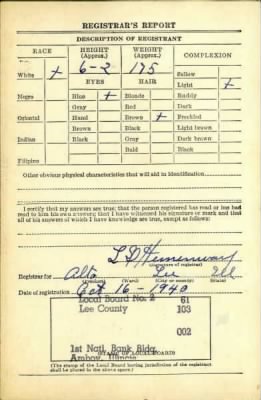 REGISTRAR'S REPORT
DESCRIPTION OF REGISTRANT
RACE HEIGHT (Approx.) WEIGHT (Approx.) COMPLEXION
White + 6-2 175 Sallow
EYES HAIR Light +
Negro Blue + Blonde Ruddy
Gray Red Dark
Oriental Hazel Brown + Freckled
Brown Black Light brown
Indian Black Gray Dark brown
Bald Black
Filipino
Other obvious physical characteristics that will aid in identification
I certify that my answers are true; that the person registered has read or has had
read to him his own answers; that I have witnessed his signature or mark and that
all of his answers of which I have knowledge are true, except as follows:
(Signature of registrar)
Registrar for Alto Lee Ill
(Precinct) (Ward) (City or county) (State)
Date of registration Oct 16 - 1940
Local Board No. 2 61
Lee County 103
002
1st Natl. Bank Bldg.
Amboy, Illinois
(STAMP OF LOCAL BOARD)
(The stamp of the Local Board having jurisdiction of the registrant
shall be placed in the above space.)